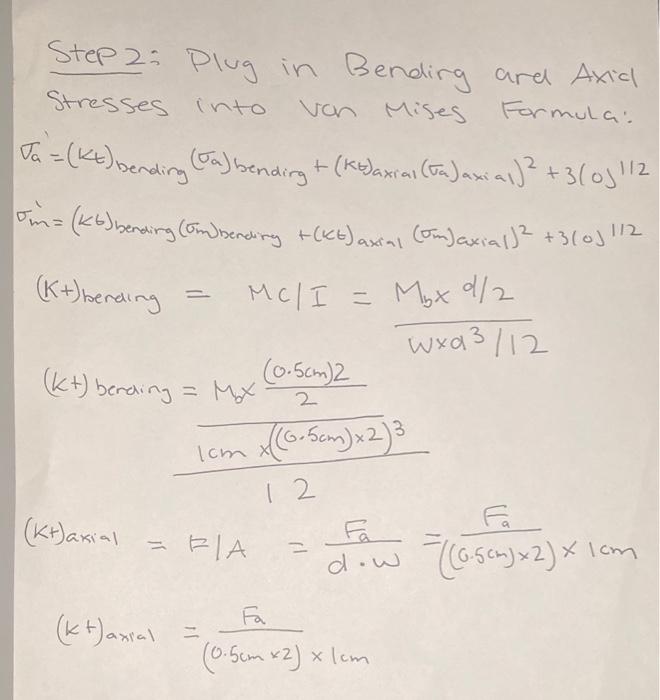 Step 2: Plug in Bending and Axial
Stresses into Von Mises Formula:
σa' = (Kt)bending (σa)bending + (Kt)axial (σa)axial)² + 3(0)^1/2
σm' = (Kt)bending (σm)bending + (Kt)axial (σm)axial)² + 3(0)^1/2
(Kt)bending = MC/I = Mb x d/2 / w x d³/12
(kt) bending = Mb x (0.5cm)2 / 2
1cm x ((0.5cm) x 2)³
12
(Kt)axial = F/A = Fa / d·w = Fa / ((0.5cm) x 2) x 1cm
(kt)axial = Fa / (0.5cm x 2) x 1cm